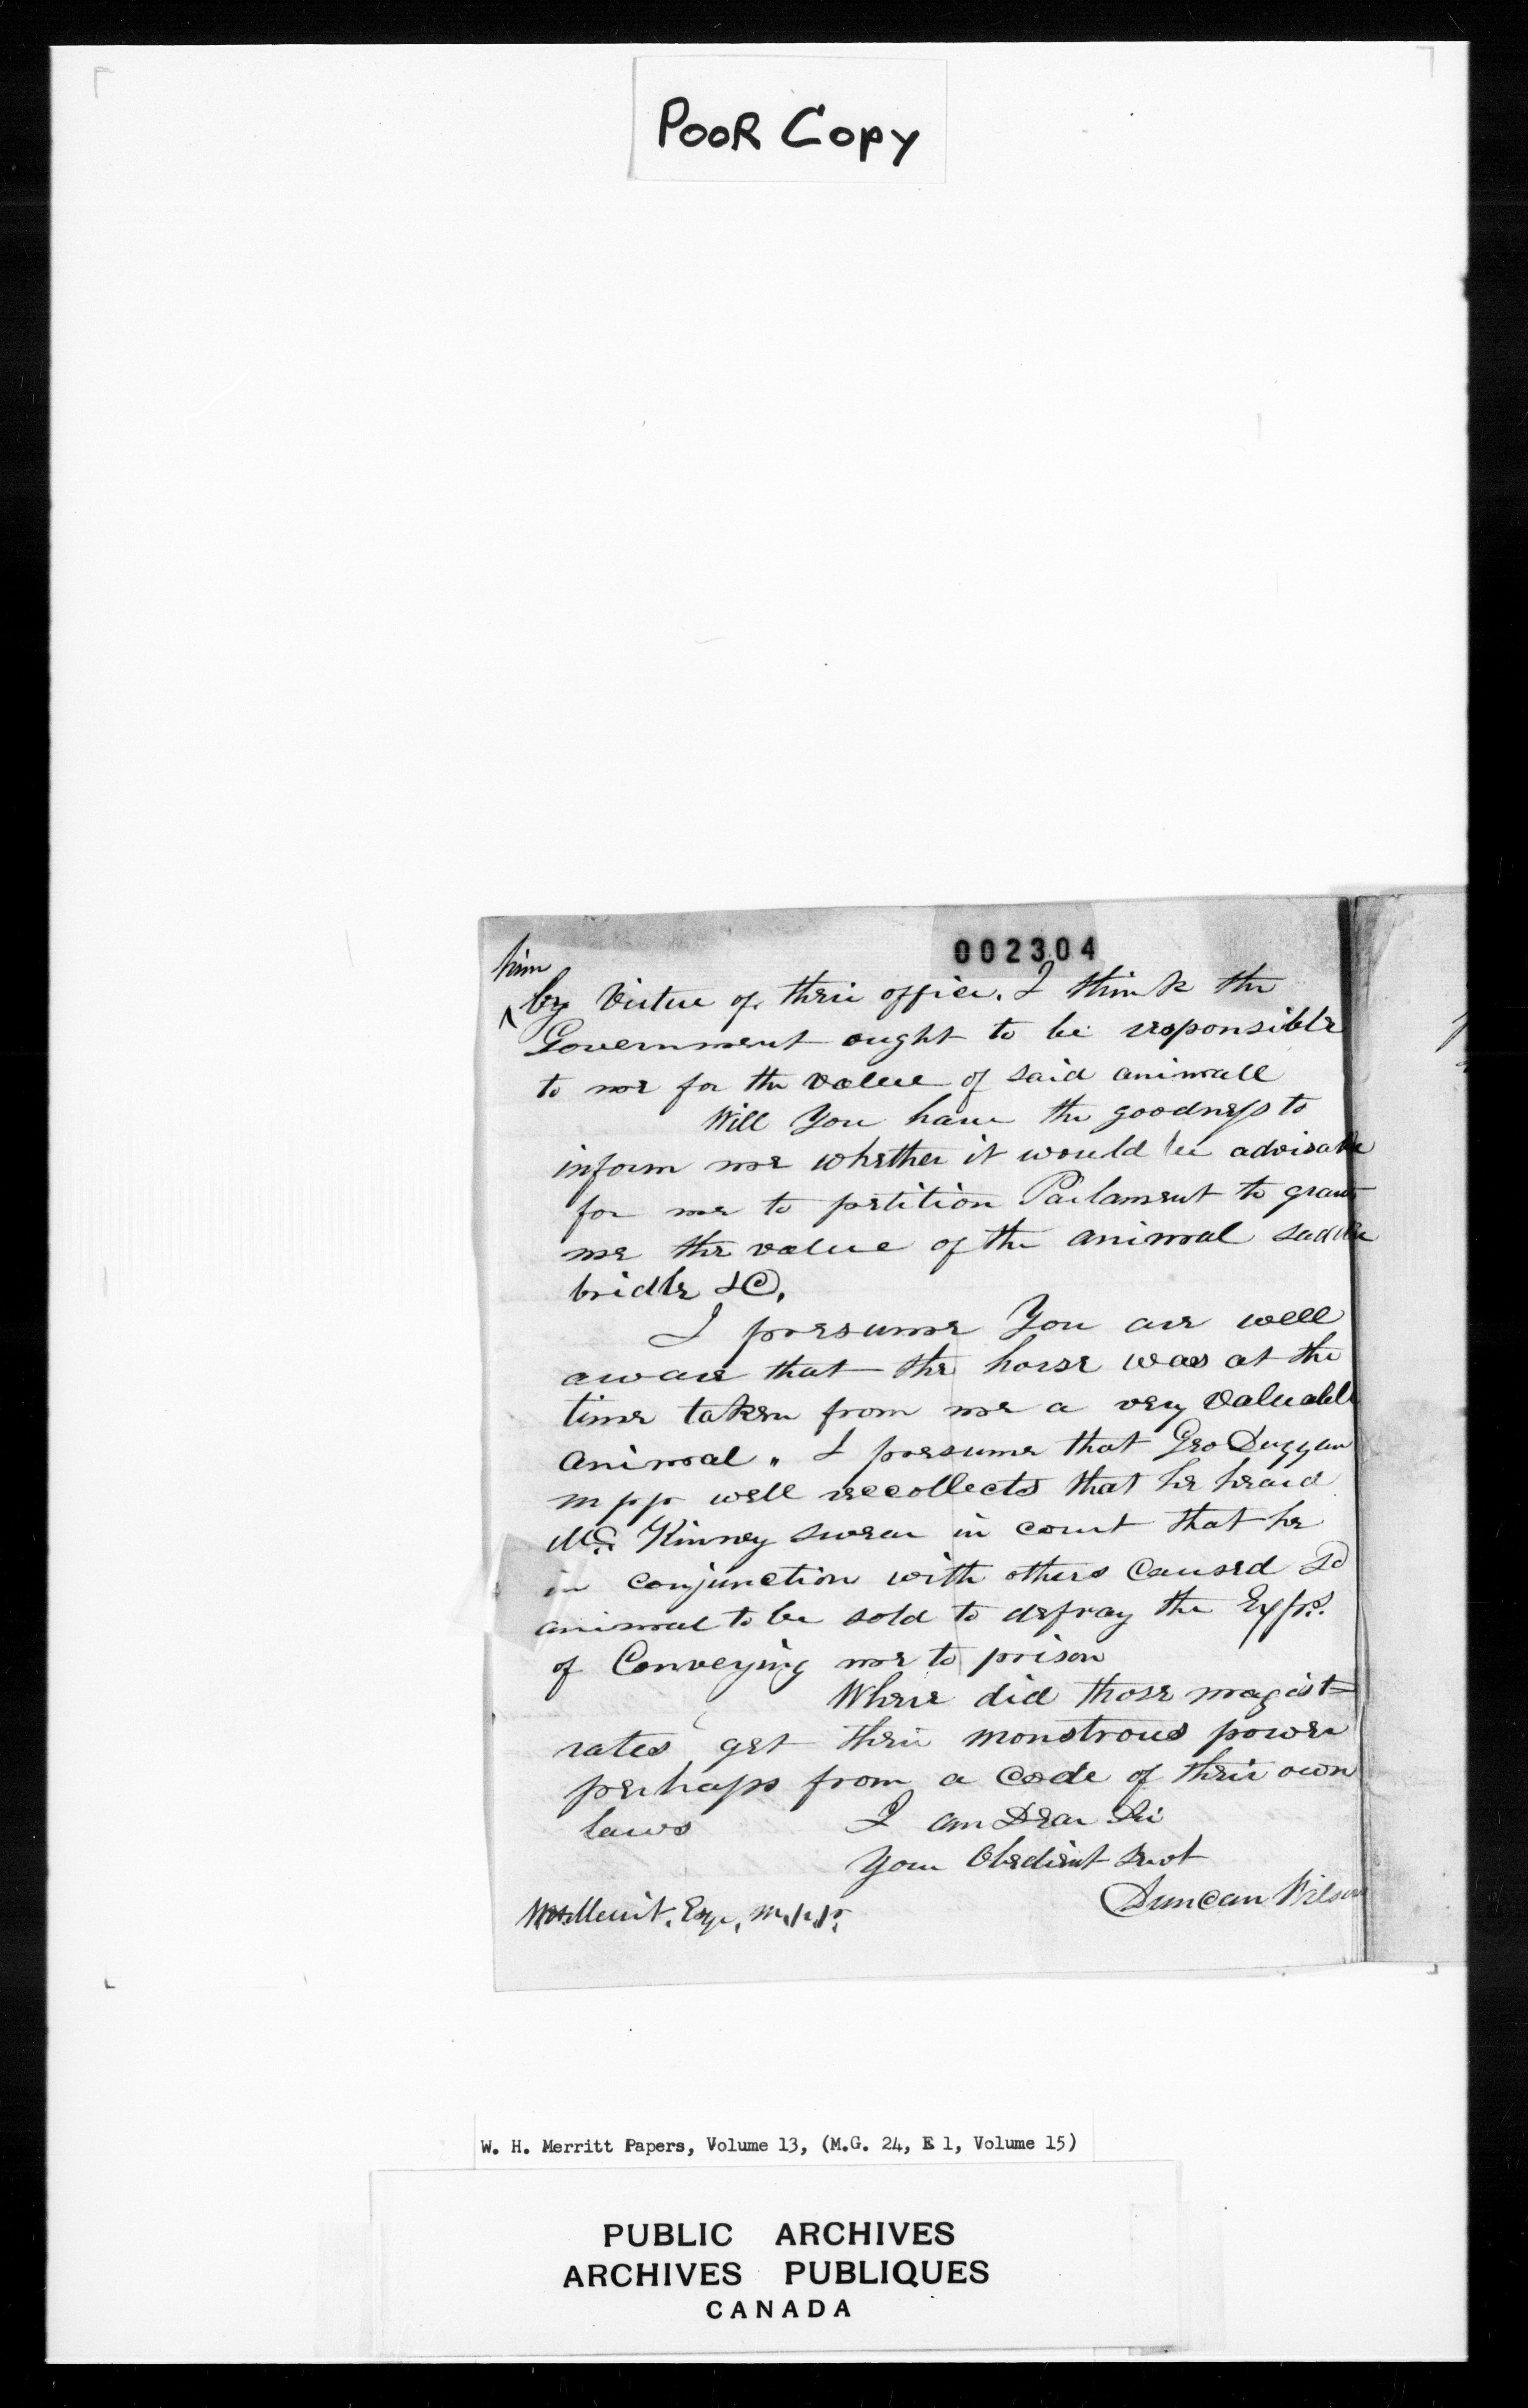 POOR Copy
002304
him
^ by Virtue of their office. I think the
Government ought to be responsible
to me for the value of said animall
Will you have the goodness to
inform me whether it would be advisable
for me to petition Parlament to grant
me the value of the animal saddle
bridle &C.
I presume You are well
aware that the horse was at the
time taken from me a very Valuable
animal " I presume that Geo Duggan
mpp well recollects that he heard
Mc Kinney swear in court that he
in conjunction with others Caused sd
animal to be sold to defray the Exps.
of Conveying me to prison
Where did those magist=
rates get their monstrous power
perhaps from a Code of their own
laws I am Dear Sir
Your Obedient Servt
Duncan Wilson
WH Merrit, Esqr, M.p.p.
W. H. Merritt Papers, Volume 13, (M.G. 24, E 1, Volume 15)
PUBLIC ARCHIVES
ARCHIVES PUBLIQUES
CANADA